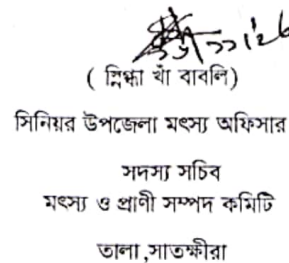 ( স্নিগ্ধা খাঁ বাবলি)
সিনিয়র উপজেলা মৎস্য অফিসার
সদস্য সচিব
মৎস্য ও প্রাণী সম্পদ কমিটি
তালা,সাতক্ষীরা